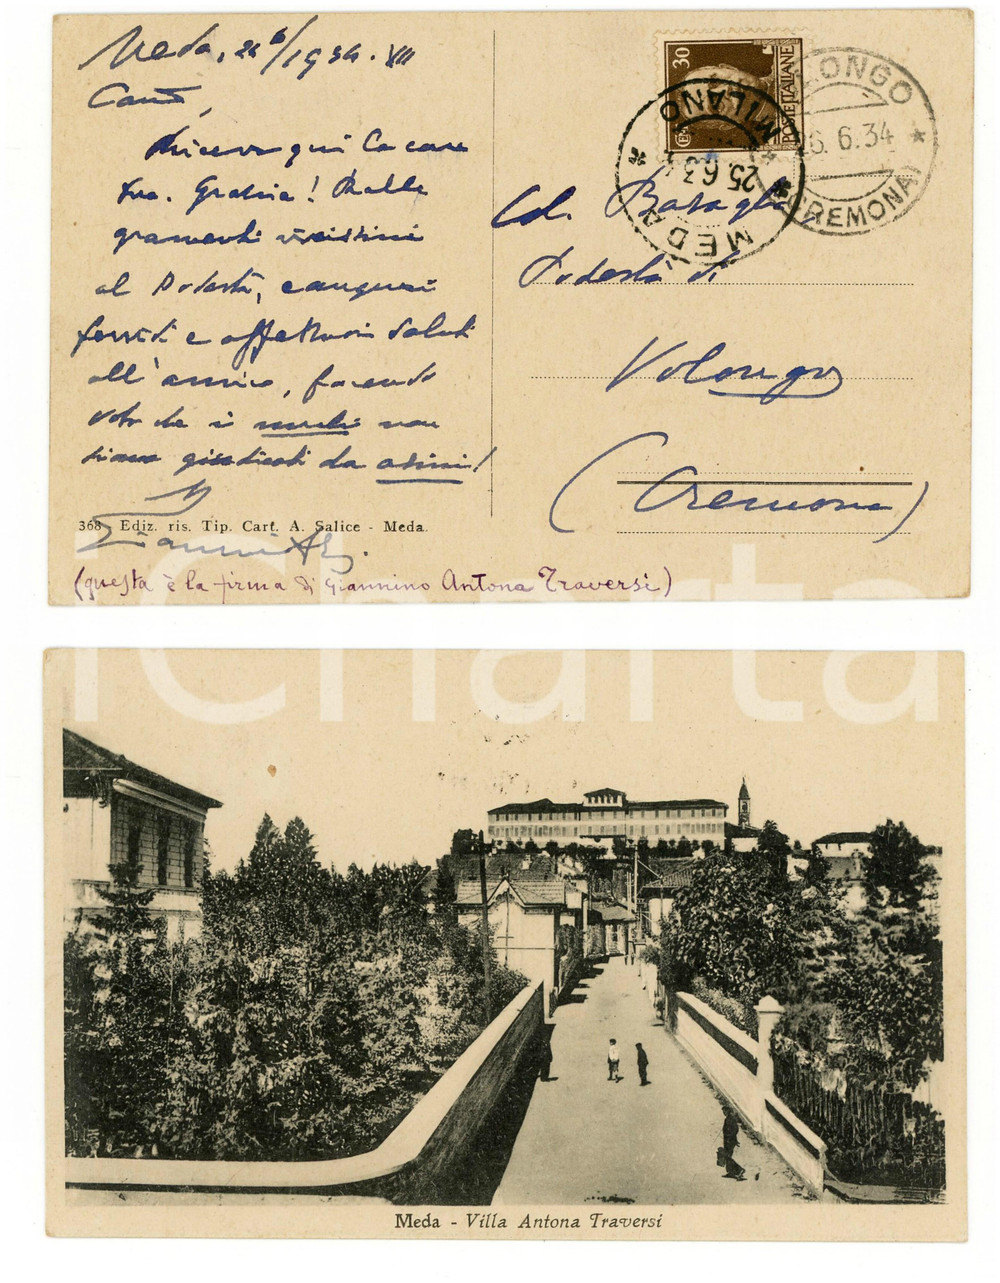 Meda, 24/6/1934 · XII
Caro,
Ricevo qui la cara
tua. Grazie! Ralle
gramenti vivissimi
al Podestà, e auguri
fervidi e affettuosi saluti
all'amico, facendo
voto che i muli non
siano giudicati da asini!
368 Ediz. ris. Tip. Cart. A. Salice - Meda.
(questa è la firma di Giannino Antona Traversi)
30
POSTE ITALIANE
MEDA * MILANO *
25.6.34
VOLONGO * (CREMONA) *
26.6.34
Podestà di
Volongo
(Cremona)
iCharta
Meda - Villa Antona Traversi